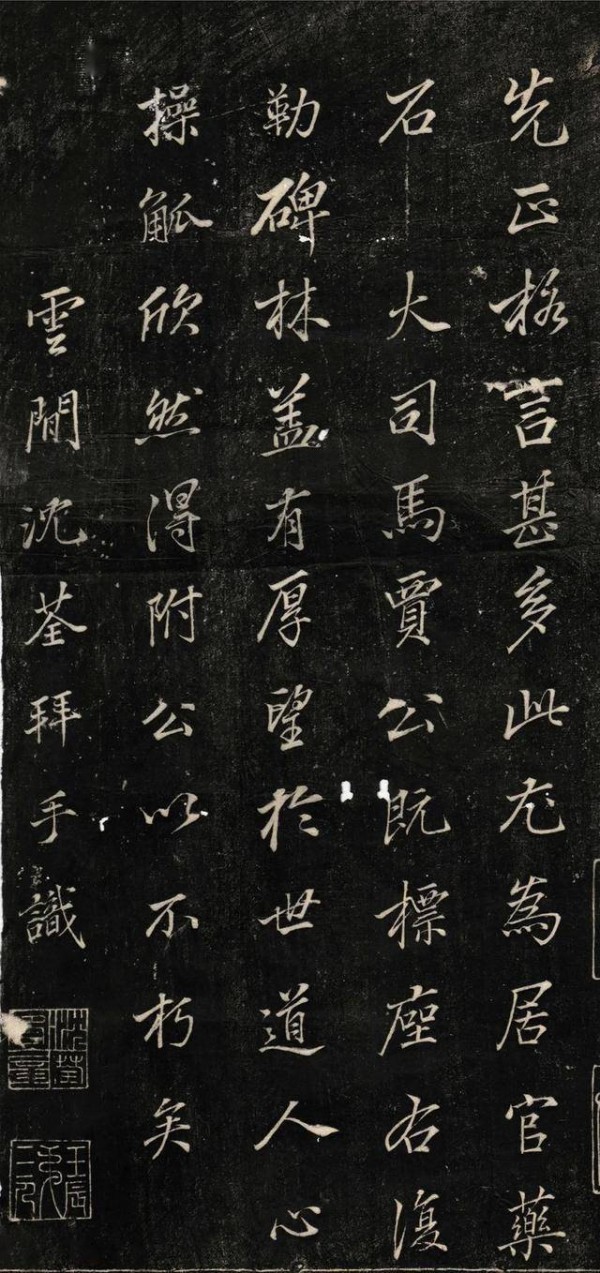 先正格言甚多此尤為居官藥
石 大司馬賈公既標座右復
勒碑林盖有厚望於世道人心
操觚欣然得附公以不朽矣
雲間沈荃拜手識
沈荃
壬辰